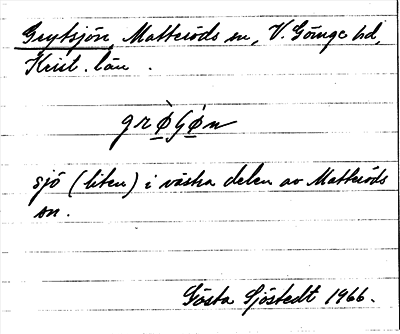 Grytsjön, Matteröds sn, V. Göinge hd,
Krist. län.
sjö (liten) i västra delen av Matteröds
sn.
Gösta Sjöstedt 1966.